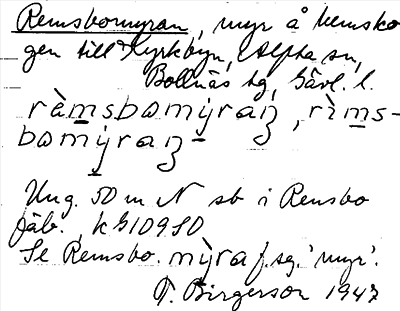 Remsbomyran, myr å hemsko-
gen till Kyrkbyn, Alfta sn,
Bollnäs tg, Gävl. l.
ràmsbomýraꞤ, rìms-
bomýraꞤ
Ung. 50 m N sb i Rensbo
fäb.
Se Remsbo. mỳra f. sg. 'myr'.
T. Birgerson 1947